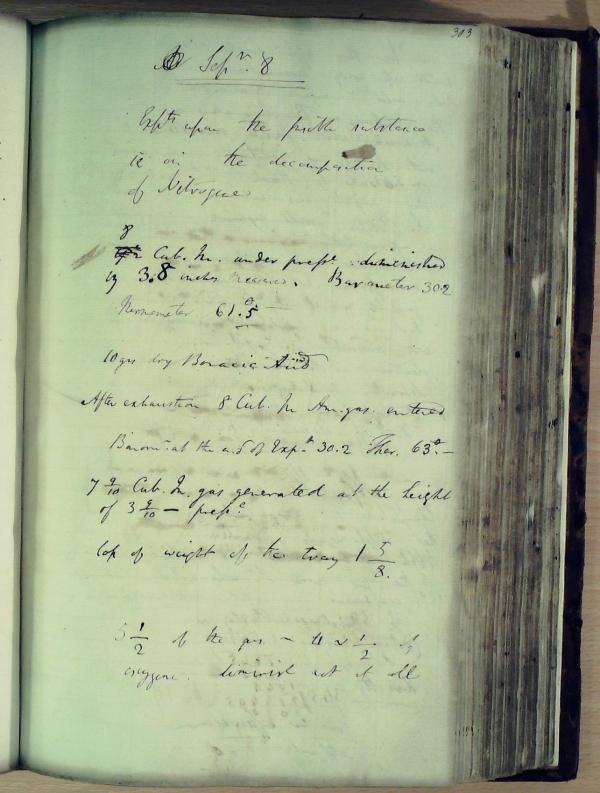 303
Sepr. 8
Expts upon the fusible substance
ie on the decomposition
of Nitrogene
8
Cub. In. under presse. diminished
by 3.8 inches Measures. Barometer 30.2
Thermometer 61°.5
10 grs dry Boracic Acid
After exhaustion 8 Cub. In Am. gas. entered
Barom. at the end of Expt. 30.2 Ther. 63°.–
7 9/10 Cub. In. gas generated at the height
of 3 9/10 — presse.
loss of weight of the tray 1 5/8.
5 1/2 of the gas – 1/2 of
oxygene. diminishd not at all